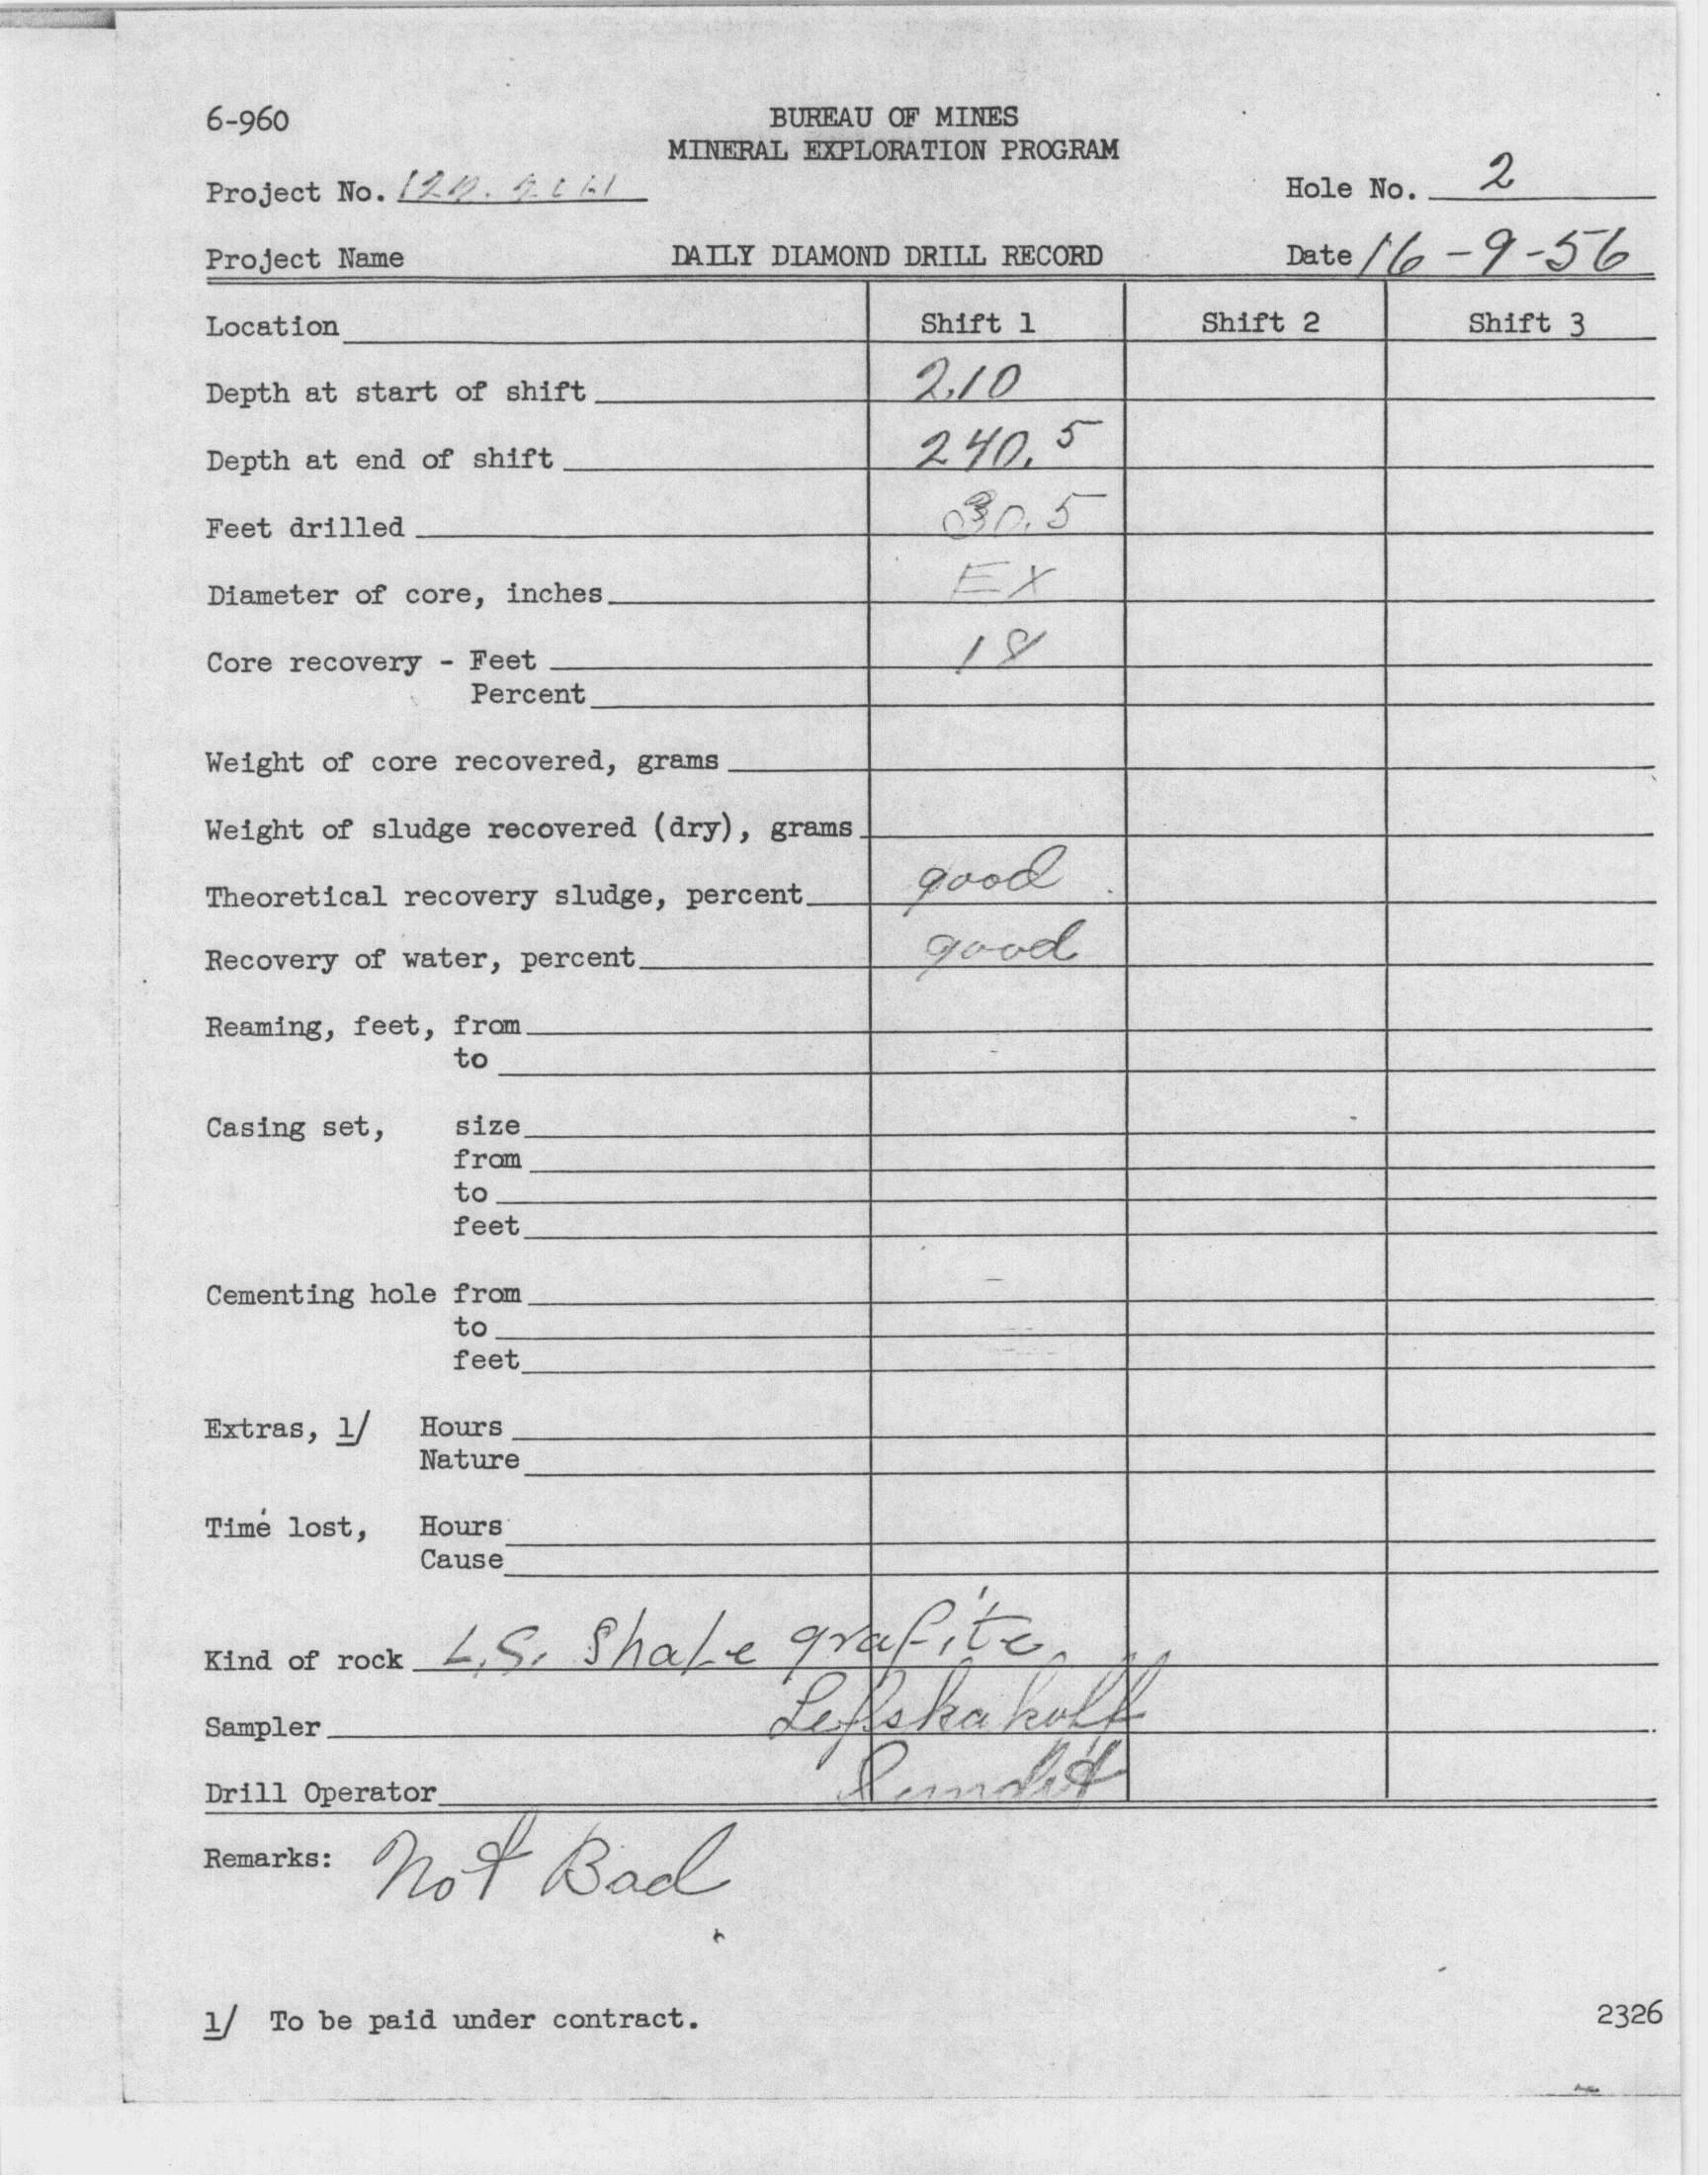 6-960
BUREAU OF MINES
MINERAL EXPLORATION PROGRAM
Project No.
Hole No. 2
Project Name DAILY DIAMOND DRILL RECORD Date 16-9-56
Location Shift 1 Shift 2 Shift 3
Depth at start of shift 2.10
Depth at end of shift 240.5
Feet drilled 30.5
Diameter of core, inches EX
Core recovery - Feet 18
Percent
Weight of core recovered, grams
Weight of sludge recovered (dry), grams
Theoretical recovery sludge, percent good
Recovery of water, percent good
Reaming, feet, from
to
Casing set, size
from
to
feet
Cementing hole from
to
feet
Extras, 1/ Hours
Nature
Time lost, Hours
Cause
Kind of rock L.S. Shale grafite
Sampler
Drill Operator
Remarks: Not Bad
1/ To be paid under contract.
2326